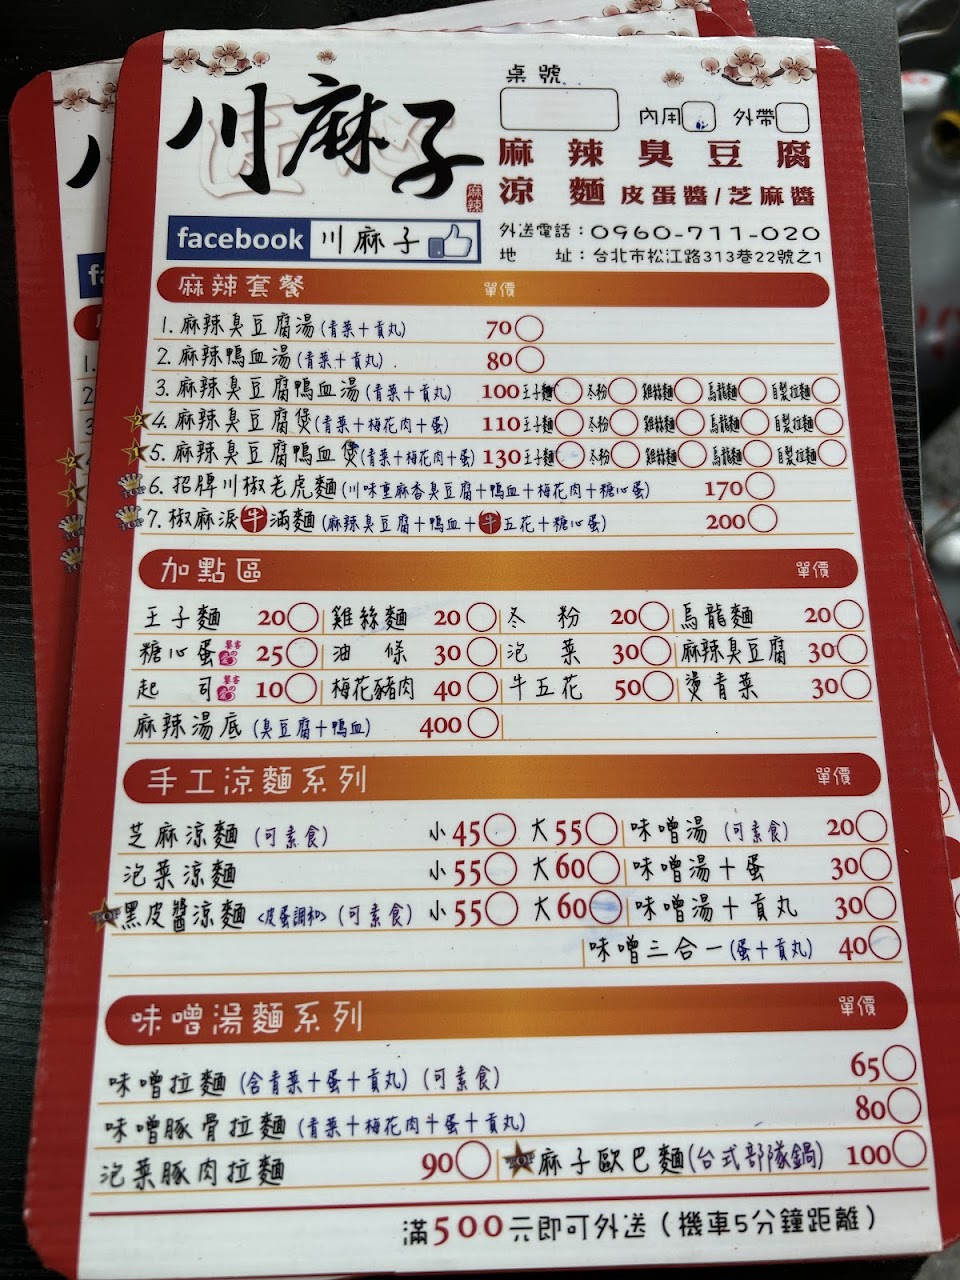 川麻子
麻辣
桌號
內用 外帶
麻辣臭豆腐
涼麵 皮蛋醬/芝麻醬
facebook 川麻子
外送電話：0960-711-020
地 址：台北市松江路313巷22號之1
麻辣套餐 單價
1. 麻辣臭豆腐湯(青菜+貢丸) 70
2. 麻辣鴨血湯(青菜+貢丸) 80
3. 麻辣臭豆腐鴨血湯(青菜+貢丸) 100 王子麵 冬粉 雞絲麵 烏龍麵 自製拉麵
2 4. 麻辣臭豆腐煲(青菜+梅花肉+蛋) 110 王子麵 冬粉 雞絲麵 烏龍麵 自製拉麵
1 5. 麻辣臭豆腐鴨血煲(青菜+梅花肉+蛋) 130 王子麵 冬粉 雞絲麵 烏龍麵 自製拉麵
TOP 6. 招牌川椒老虎麵(川味重麻香臭豆腐+鴨血+梅花肉+糖心蛋) 170
TOP 7. 椒麻淚牛滿麵(麻辣臭豆腐+鴨血+牛五花+糖心蛋) 200
加點區 單價
王子麵 20 雞絲麵 20 冬粉 20 烏龍麵 20
糖心蛋 25 油條 30 泡菜 30 麻辣臭豆腐 30
起司 10 梅花豬肉 40 牛五花 50 燙青菜 30
麻辣湯底(臭豆腐+鴨血) 400
手工涼麵系列 單價
芝麻涼麵(可素食) 小45 大55 味噌湯(可素食) 20
泡菜涼麵 小55 大60 味噌湯+蛋 30
TOP 黑皮醬涼麵<皮蛋調和>(可素食) 小55 大60 味噌湯+貢丸 30
味噌三合一(蛋+貢丸) 40
味噌湯麵系列 單價
味噌拉麵(含青菜+蛋+貢丸)(可素食) 65
味噌豚骨拉麵(青菜+梅花肉+蛋+貢丸) 80
泡菜豚肉拉麵 90 TOP 麻子歐巴麵(台式部隊鍋) 100
滿500元即可外送（機車5分鐘距離）